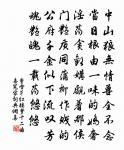 中山狼無情獸全不念
當日根由一味的驕奢
淫蕩貪還構覷着那侯
門艷質同蒲柳作踐的
公府千金似下流嘆芳
魂艷魄一載蕩悠悠
曹雪芹紅樓夢十二曲
喜冤家